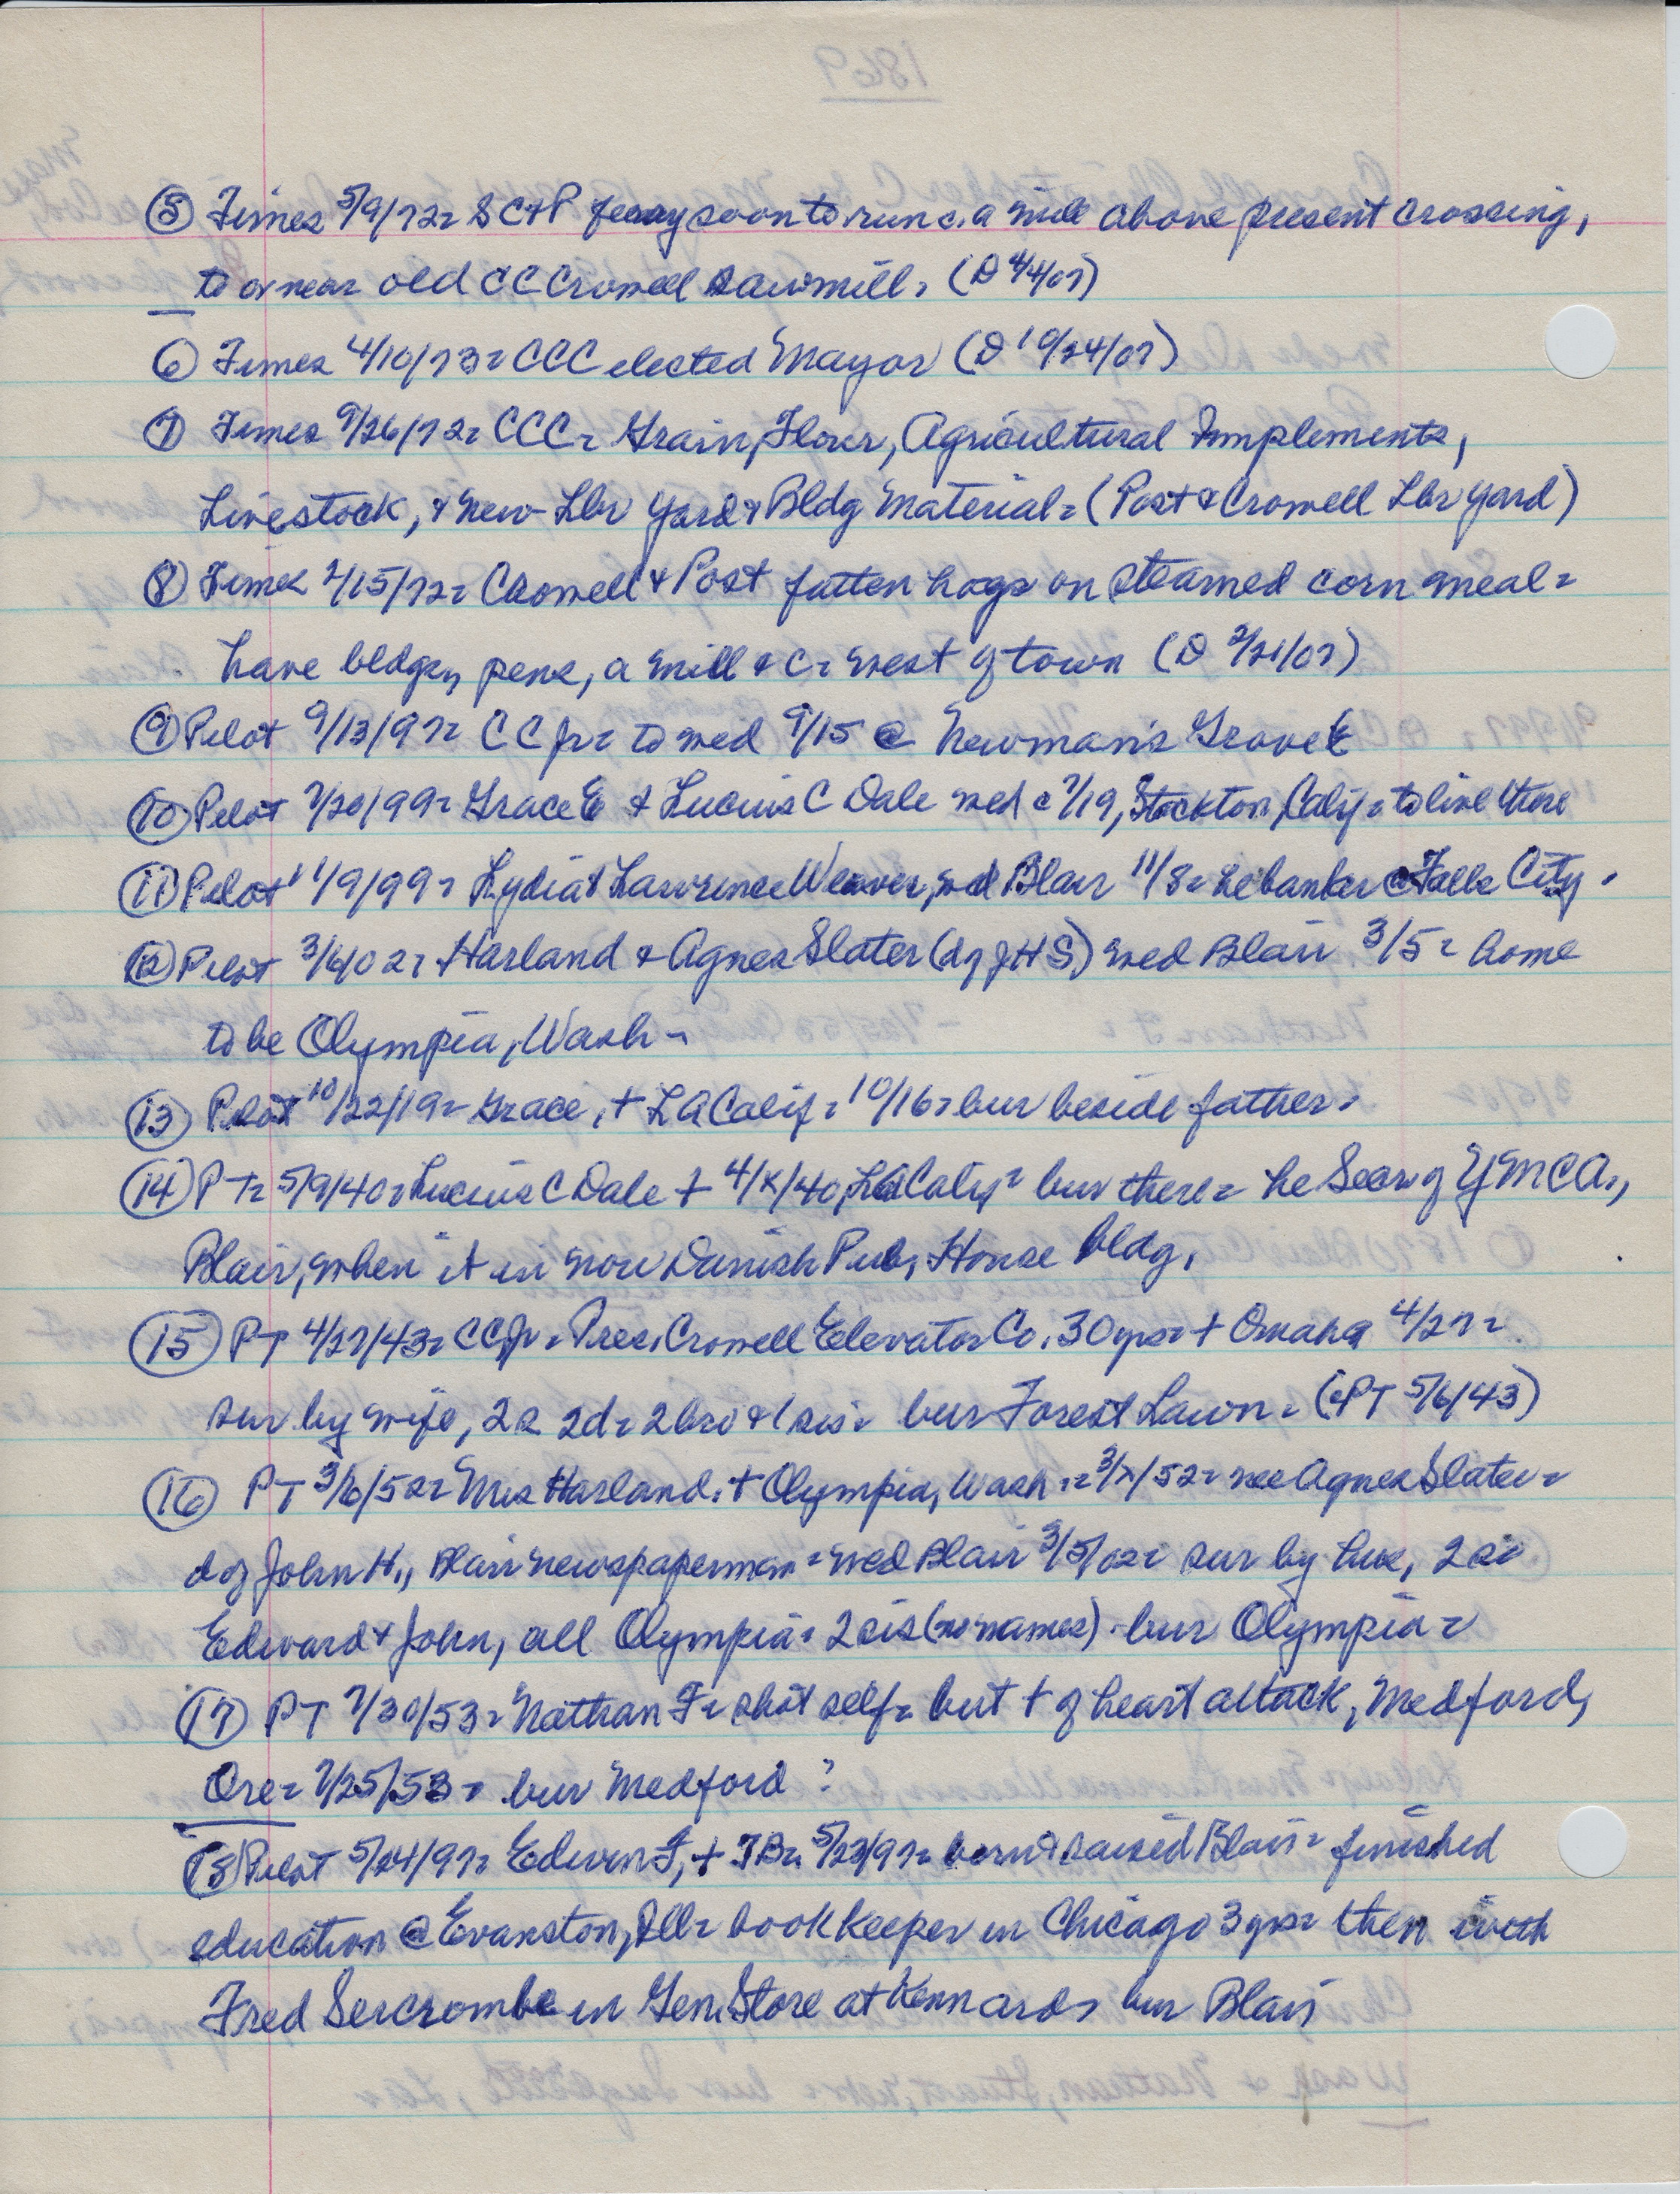 ⑤ Times 5/9/72= S C & P ferry soon to run c. a mile above present crossing,
to or near old C C Crowell sawmill= (D 4/4/07)
⑥ Times 4/10/73= CCC elected Mayor (D 10/24/07)
⑦ Times 9/26/72= CCC= Grain, Flour, Agricultural Implements,
Livestock, & new Lbr yard & Bldg Material= (Post & Crowell Lbr yard)
⑧ Times 2/15/72= Crowell & Post fatten hogs on steamed corn meal=
have bldgs, pens, a mill & c= west of town (D 2/21/07)
⑨ Pilot 9/13/97= C C Jr= to wed 9/15 @ Newman's Grove
⑩ Pilot 7/20/99= Grace E & Lucius C Dale wed c 7/19, Stockton, Calif= to live there
⑪ Pilot 11/9/99= Lydia & Lawrence Weaver, wed Blair 11/8= he banker @ Falls City.
⑫ Pilot 3/6/02= Harland & Agnes Slater (d of J H S.) wed Blair 3/5= home
to be Olympia, Wash-
⑬ Pilot 10/22/19= Grace, + LA Calif= 10/16= bur beside father=
⑭ PT= 5/9/40= Lucius C Dale + 4/x/40, LA Calif= bur there= he Secr of YMCA.,
Blair, when it in now Danish Pub. House bldg.
⑮ PT 4/27/43= CC Jr= Pres. Crowell Elevator Co. 30 yrs= + Omaha 4/27=
sur by wife, 2s 2d= 2 bro & 1 sis= bur Forest Lawn= (PT 5/6/43)
⑯ PT 3/6/52= Mrs Harland. + Olympia, Wash.= 3/x/52= nee Agnes Slater=
d of John H., Blair newspaperman= wed Blair 3/5/02= sur by hus, 2 s=
Edward & John, all Olympia= 2 sis (no names) bur Olympia=
⑰ PT 7/30/53= Nathan F= shot self= but + of heart attack, Medford,
Ore= 7/25/53= bur Medford?
⑱ Pilot 5/24/97= Edwin F, + TB= 5/23/97= born & raised Blair= finished
education @ Evanston, Ill= bookkeeper in Chicago 3 yrs= then with
Fred Sercrombe in Gen. Store at Kennard= bur Blair